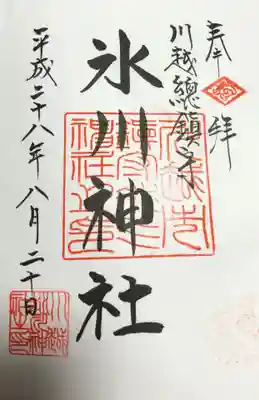 奉拝
川越總鎮守
氷川神社
平成二十八年八月二十日